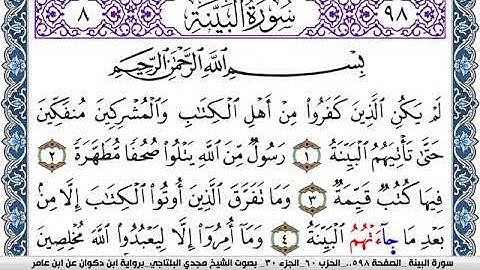 ٩٨ سُورَةُ الْبَيِّنَةِ ٨
بِسْمِ اللَّهِ الرَّحْمَٰنِ الرَّحِيمِ
لَمْ يَكُنِ الَّذِينَ كَفَرُوا مِنْ أَهْلِ الْكِتَابِ وَالْمُشْرِكِينَ مُنفَكِّينَ
حَتَّىٰ تَأْتِيَهُمُ الْبَيِّنَةُ ١ رَسُولٌ مِّنَ اللَّهِ يَتْلُوا صُحُفًا مُّطَهَّرَةً ٢
فِيهَا كُتُبٌ قَيِّمَةٌ ٣ وَمَا تَفَرَّقَ الَّذِينَ أُوتُوا الْكِتَابَ إِلَّا مِنۢ
بَعْدِ مَا جَآءَتْهُمُ الْبَيِّنَةُ ٤ وَمَآ أُمِرُوٓا إِلَّا لِيَعْبُدُوا اللَّهَ مُخْلِصِينَ
سورة البينة _الصفحة ٥٩٨_ الحزب ٦٠_الجزء ٣٠_ بصوت الشيخ مجدي البلتاجي_برواية ابن ذكوان عن ابن عامر